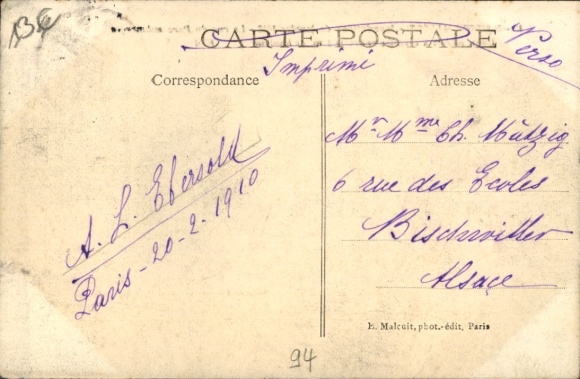 B6
CARTE POSTALE
Verso
Imprimé
Correspondance
Adresse
A. L. Ebersold
Paris - 20-2-1910
Mr Mme Ch. Mützig
6 rue des Ecoles
Bischwiller
Alsace
E. Malcuit, phot.-édit, Paris
94